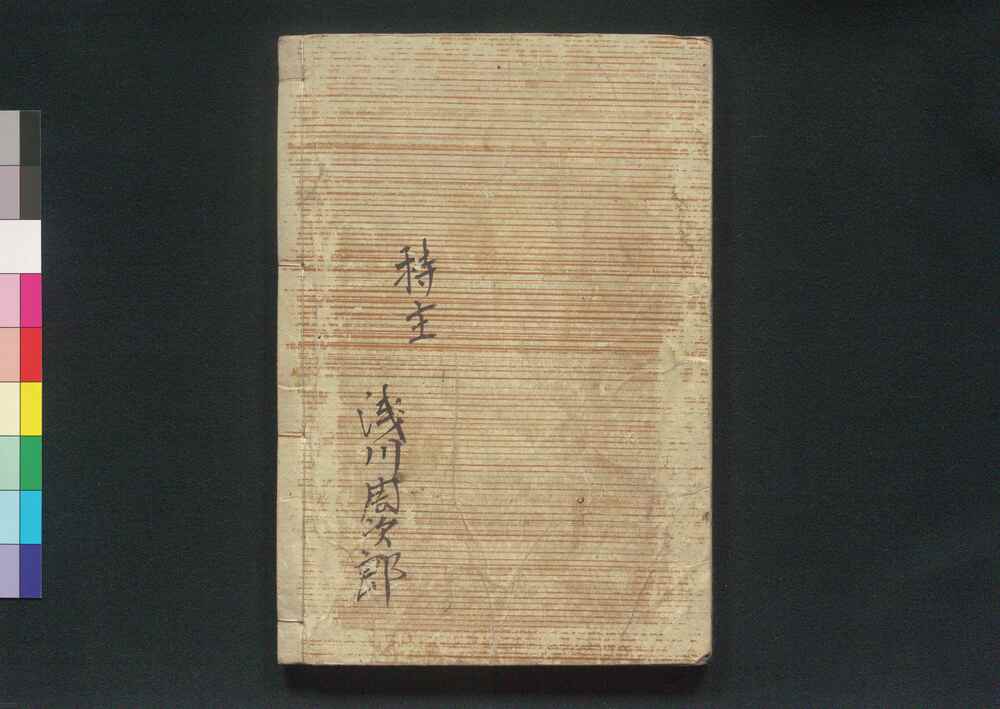 持主
浅川周次郎